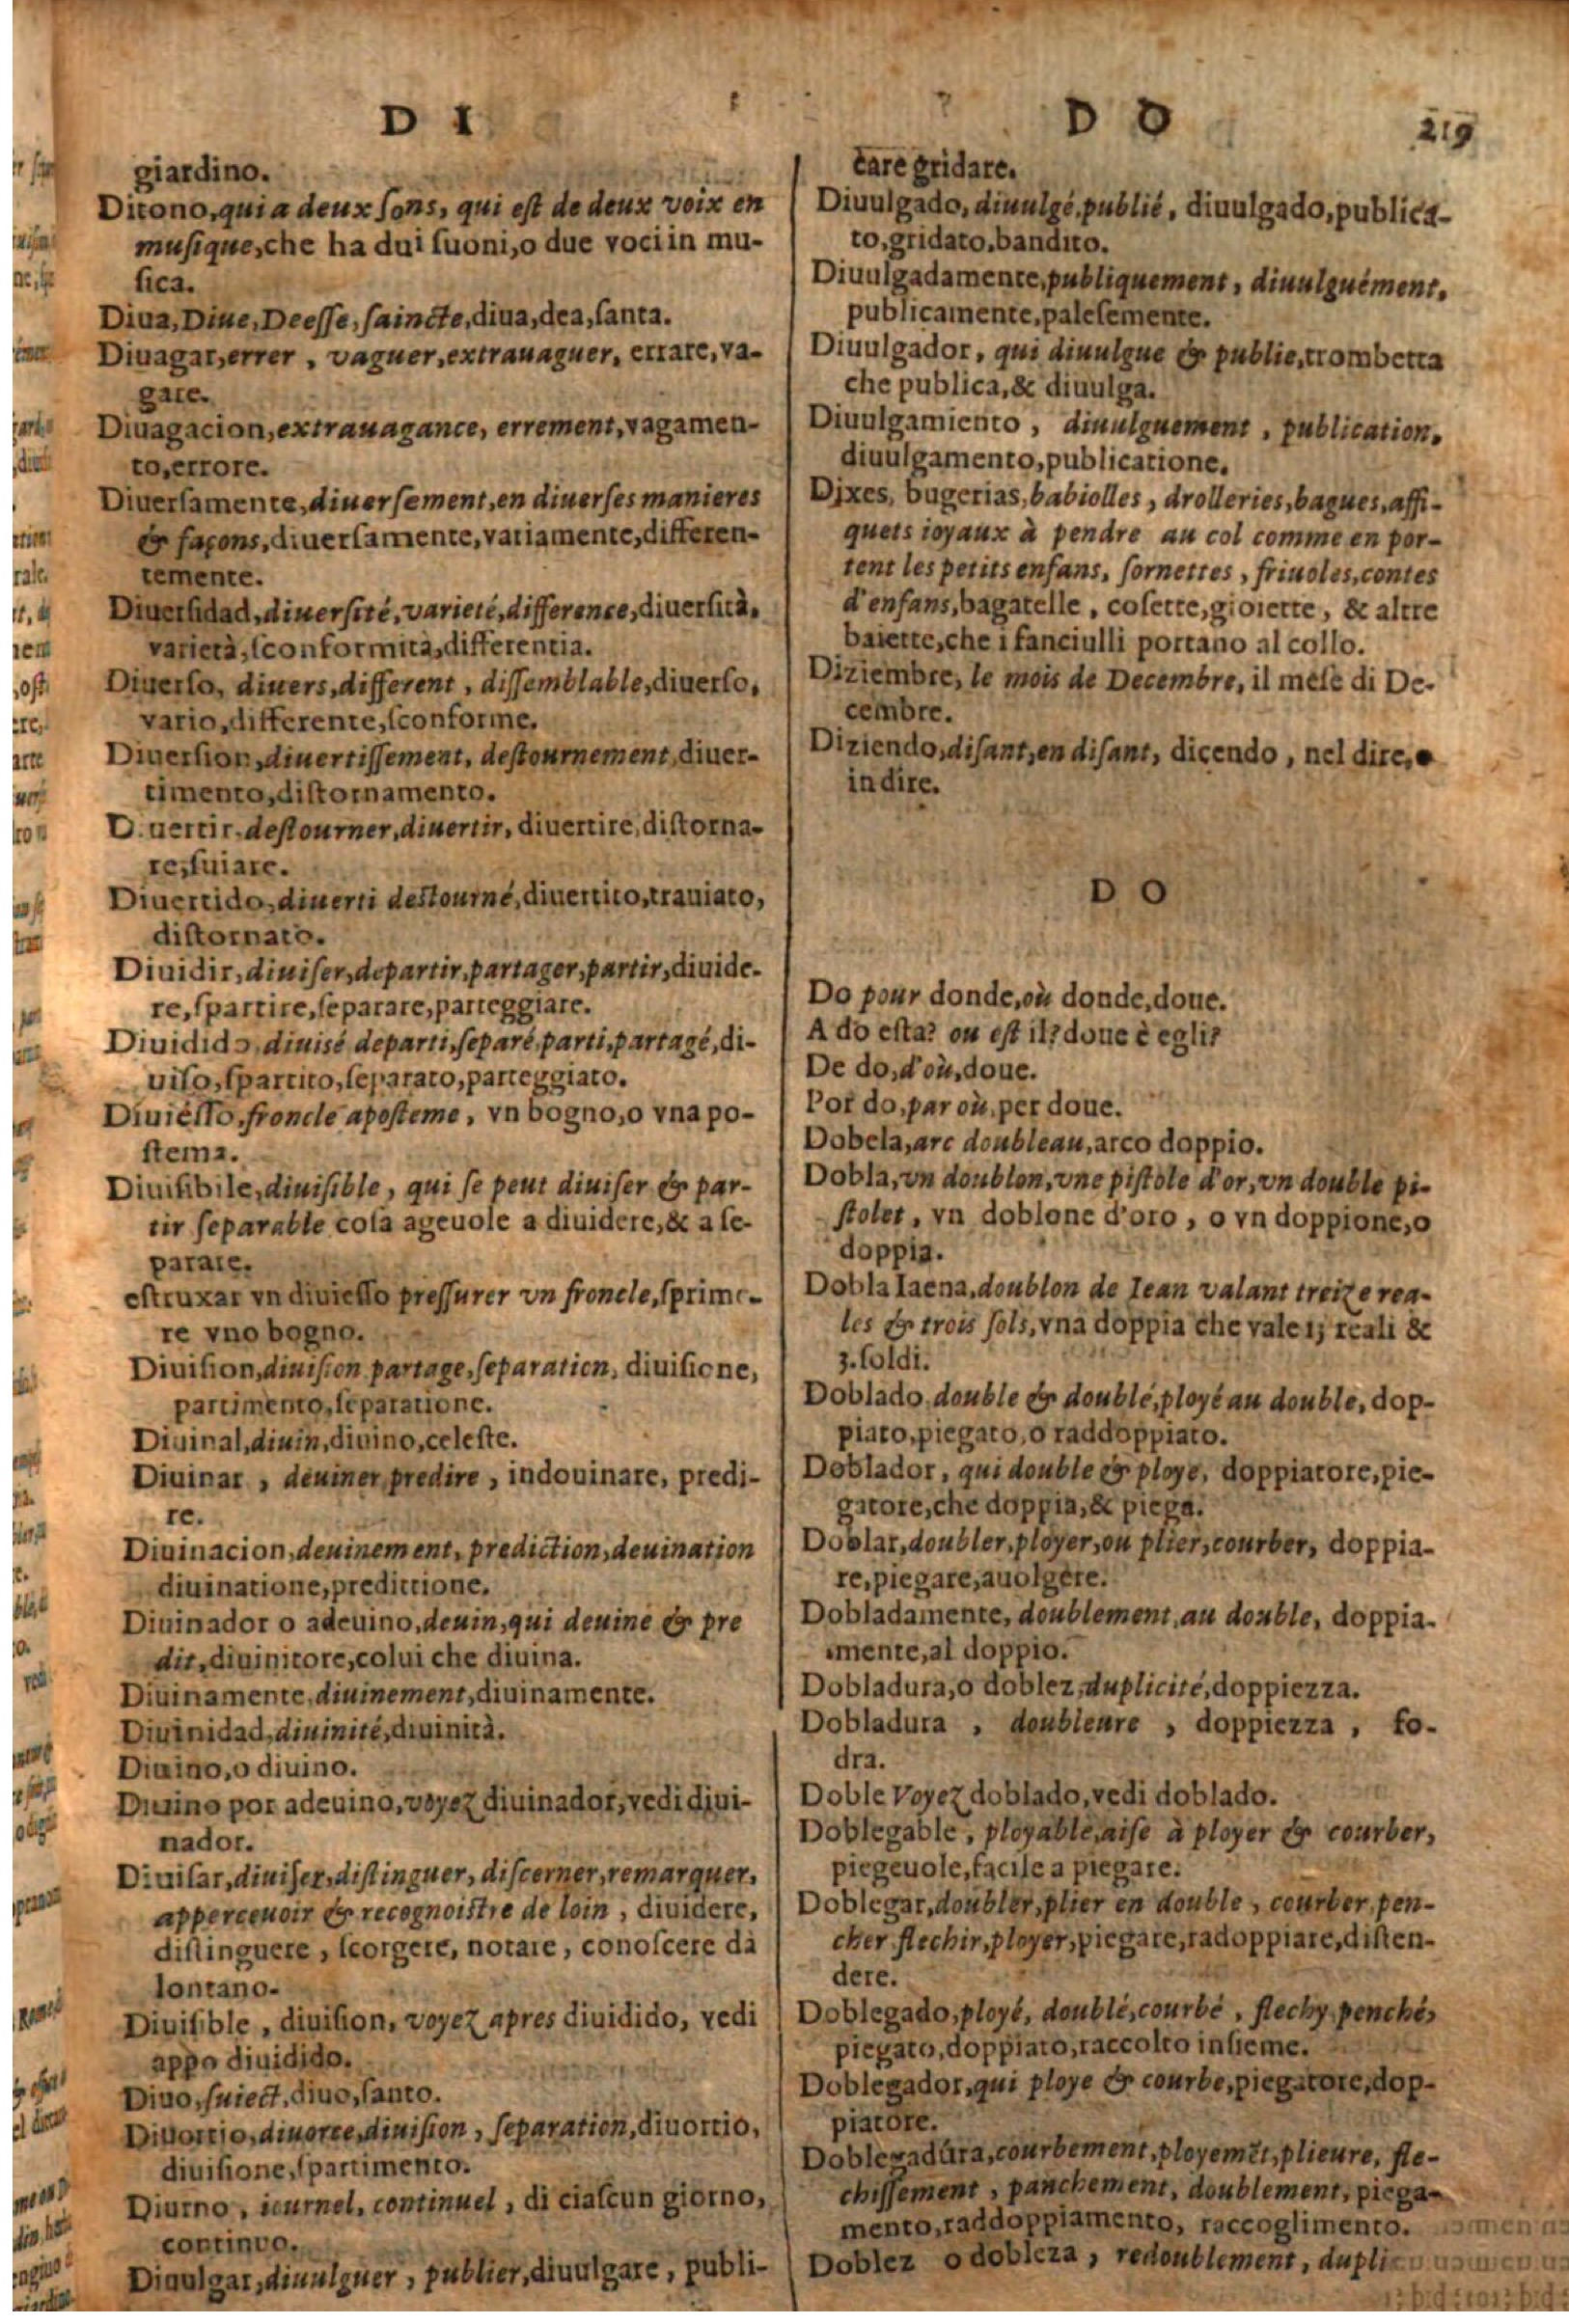 D I
giardino.
Ditono, qui a deux ſons, qui eſt de deux voix en
muſique, che ha dui ſuoni, o due voci in mu-
ſica.
Diua, Diue, Deeſſe, ſaincte, diua, dea, ſanta.
Diuagar, errer, vaguer, extrauaguer, errare, va-
gare.
Diuagacion, extrauagance, errement, vagamen-
to, errore.
Diuerſamente, diuerſement, en diuerſes manieres
& façons, diuerſamente, variamente, differen-
temente.
Diuerſidad, diuerſité, varieté, difference, diuerſità,
varietà, ſconformità, differentia.
Diuerſo, diuers, different, diſſemblable, diuerſo,
vario, differente, ſconforme.
Diuerſion, diuertiſſement, deſtournement, diuer-
timento, diſtornamento.
D.uertir. deſtourner, diuertir, diuertire, diſtorna-
re, ſuiare.
Diuertido, diuerti deſtourné, diuertito, trauiato,
diſtornato.
Diuidir, diuiſer, departir, partager, partir, diuide-
re, ſpartire, ſeparare, parteggiare.
Diuidido, diuisé departi, ſeparé, parti, partagé, di-
uiſo, ſpartito, ſeparato, parteggiato.
Diuieſſo, froncle apoſteme, vn bogno, o vna po-
ſtema.
Diuiſibile, diuiſible, qui ſe peut diuiſer & par-
tir ſeparable coſa ageuole a diuidere, & a ſe-
parare.
eſtruxar vn diuieſſo preſſurer vn froncle, ſprime-
re vno bogno.
Diuiſion, diuiſion partage, ſeparation, diuiſione,
partimento, ſeparatione.
Diuinal, diuin, diuino, celeſte.
Diuinar, deuiner, predire, indouinare, predi-
re.
Diuinacion, deuinement, prediction, deuination
diuinatione, predittione.
Diuinador o adeuino, deuin, qui deuine & pre
dit, diuinitore, colui che diuina.
Diuinamente, diuinement, diuinamente.
Diuinidad, diuinité, diuinità.
Diuino, o diuino.
Diuino por adeuino, voyez diuinador, vedi diui-
nador.
Diuiſar, diuiſer, diſtinguer, diſcerner, remarquer,
apperceuoir & recognoiſtre de loin, diuidere,
diſtinguere, ſcorgere, notare, conoſcere da
lontano.
Diuiſible, diuiſion, voyez apres diuidido, vedi
appo diuidido.
Diuo, ſuiect, diuo, ſanto.
Diuortio, diuorce, diuiſion, ſeparation, diuortio,
diuiſione, ſpartimento.
Diurno, iournel, continuel, di ciaſcun giorno,
continuo.
Diuulgar, diuulguer, publier, diuulgare, publi-
D O 219
care gridare.
Diuulgado, diuulgé, publié, diuulgado, publica-
to, gridato, bandito.
Diuulgadamente, publiquement, diuulguément,
publicamente, paleſemente.
Diuulgador, qui diuulgue & publie, trombetta
che publica, & diuulga.
Diuulgamiento, diuulguement, publication,
diuulgamento, publicatione.
Dixes, bugerias, babiolles, drolleries, bagues, affi-
quets ioyaux à pendre au col comme en por-
tent les petits enfans, ſornettes, friuoles, contes
d'enfans, bagatelle, coſette, gioiette, & altre
baiette, che i fanciulli portano al collo.
Diziembre, le mois de Decembre, il meſe di De-
cembre.
Diziendo, diſant, en diſant, dicendo, nel dire, o
in dire.
D O
Do pour donde, où donde, doue.
A do eſta? ou eſt il? doue è egli?
De do, d'où, doue.
Por do, par où, per doue.
Dobela, arc doubleau, arco doppio.
Dobla, vn doublon, vne piſtole d'or, vn double pi-
ſtolet, vn doblone d'oro, o vn doppione, o
doppia.
Dobla Iaena, doublon de Iean valant treize rea-
les & trois ſols, vna doppia che vale 13 reali &
3. ſoldi.
Doblado, double & doublé, ployé au double, dop-
piato, piegato, o raddoppiato.
Doblador, qui double & ploye, doppiatore, pie-
gatore, che doppia, & piega.
Doblar, doubler, ployer, ou plier, courber, doppia-
re, piegare, auolgere.
Dobladamente, doublement, au double, doppia-
mente, al doppio.
Dobladura, o doblez, duplicité, doppiezza.
Dobladura, doubleure, doppiezza, fo-
dra.
Doble Voyez doblado, vedi doblado.
Doblegable, ployable, aiſe à ployer & courber,
piegeuole, facile a piegare.
Doblegar, doubler, plier en double, courber, pen-
cher flechir, ployer, piegare, radoppiare, diſten-
dere.
Doblegado, ployé, doublé, courbé, flechy penché,
piegato, doppiato, raccolto inſieme.
Doblegador, qui ploye & courbe, piegatore, dop-
piatore.
Doblegadura, courbement, ployemẽt, plieure, fle-
chiſſement, panchement, doublement, piega-
mento, raddoppiamento, raccoglimento.
Doblez o dobleza, redoublement, dupli